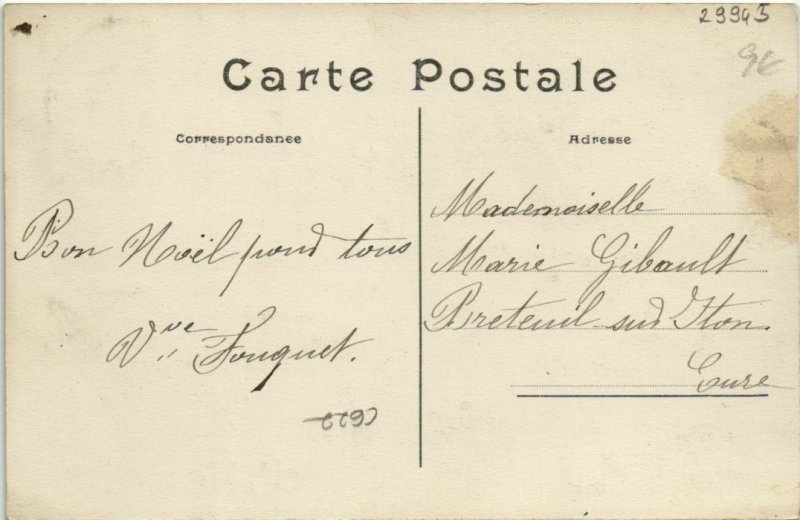 29945
9€
Carte Postale
Correspondance
Bon Noël pour tous
Vve Fouquet.
Adresse
Mademoiselle
Marie Gibault
Breteuil sur Iton.
Eure